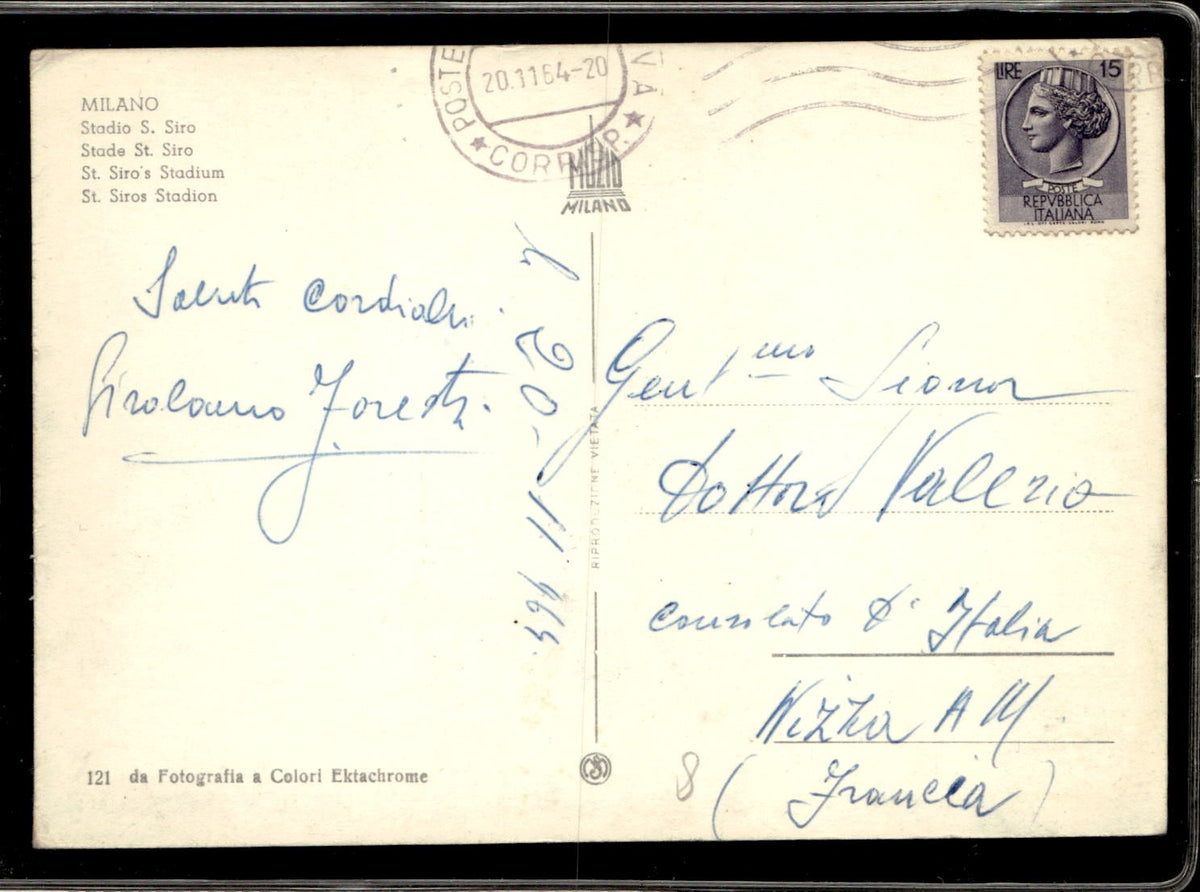 MILANO
Stadio S. Siro
Stade St. Siro
St. Siro's Stadium
St. Siros Stadion
POSTE
20.11 64-20
CORR
P.
MUZIO
MILANO
LIRE 15
POSTE
REPVBBLICA
ITALIANA
Saluti Cordiali
Girolamo
20-11
RIPRODUZIONE VIETATA
Gent mo Signor
Dottor Valerio
Consolato d'Italia
Nizza A M.
(Francia)
8
121 da Fotografia a Colori Ektachrome